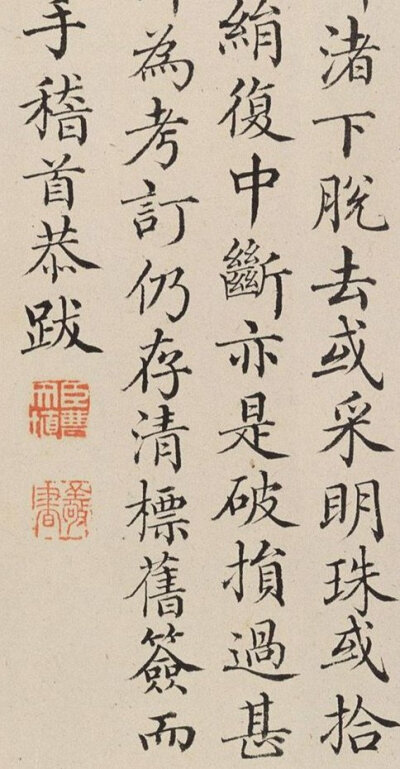 渚下脫去或采明珠或拾
絹復中斷亦是破損過甚
為考訂仍存清標舊簽而
手稽首恭跋
臣曹文埴
敬書